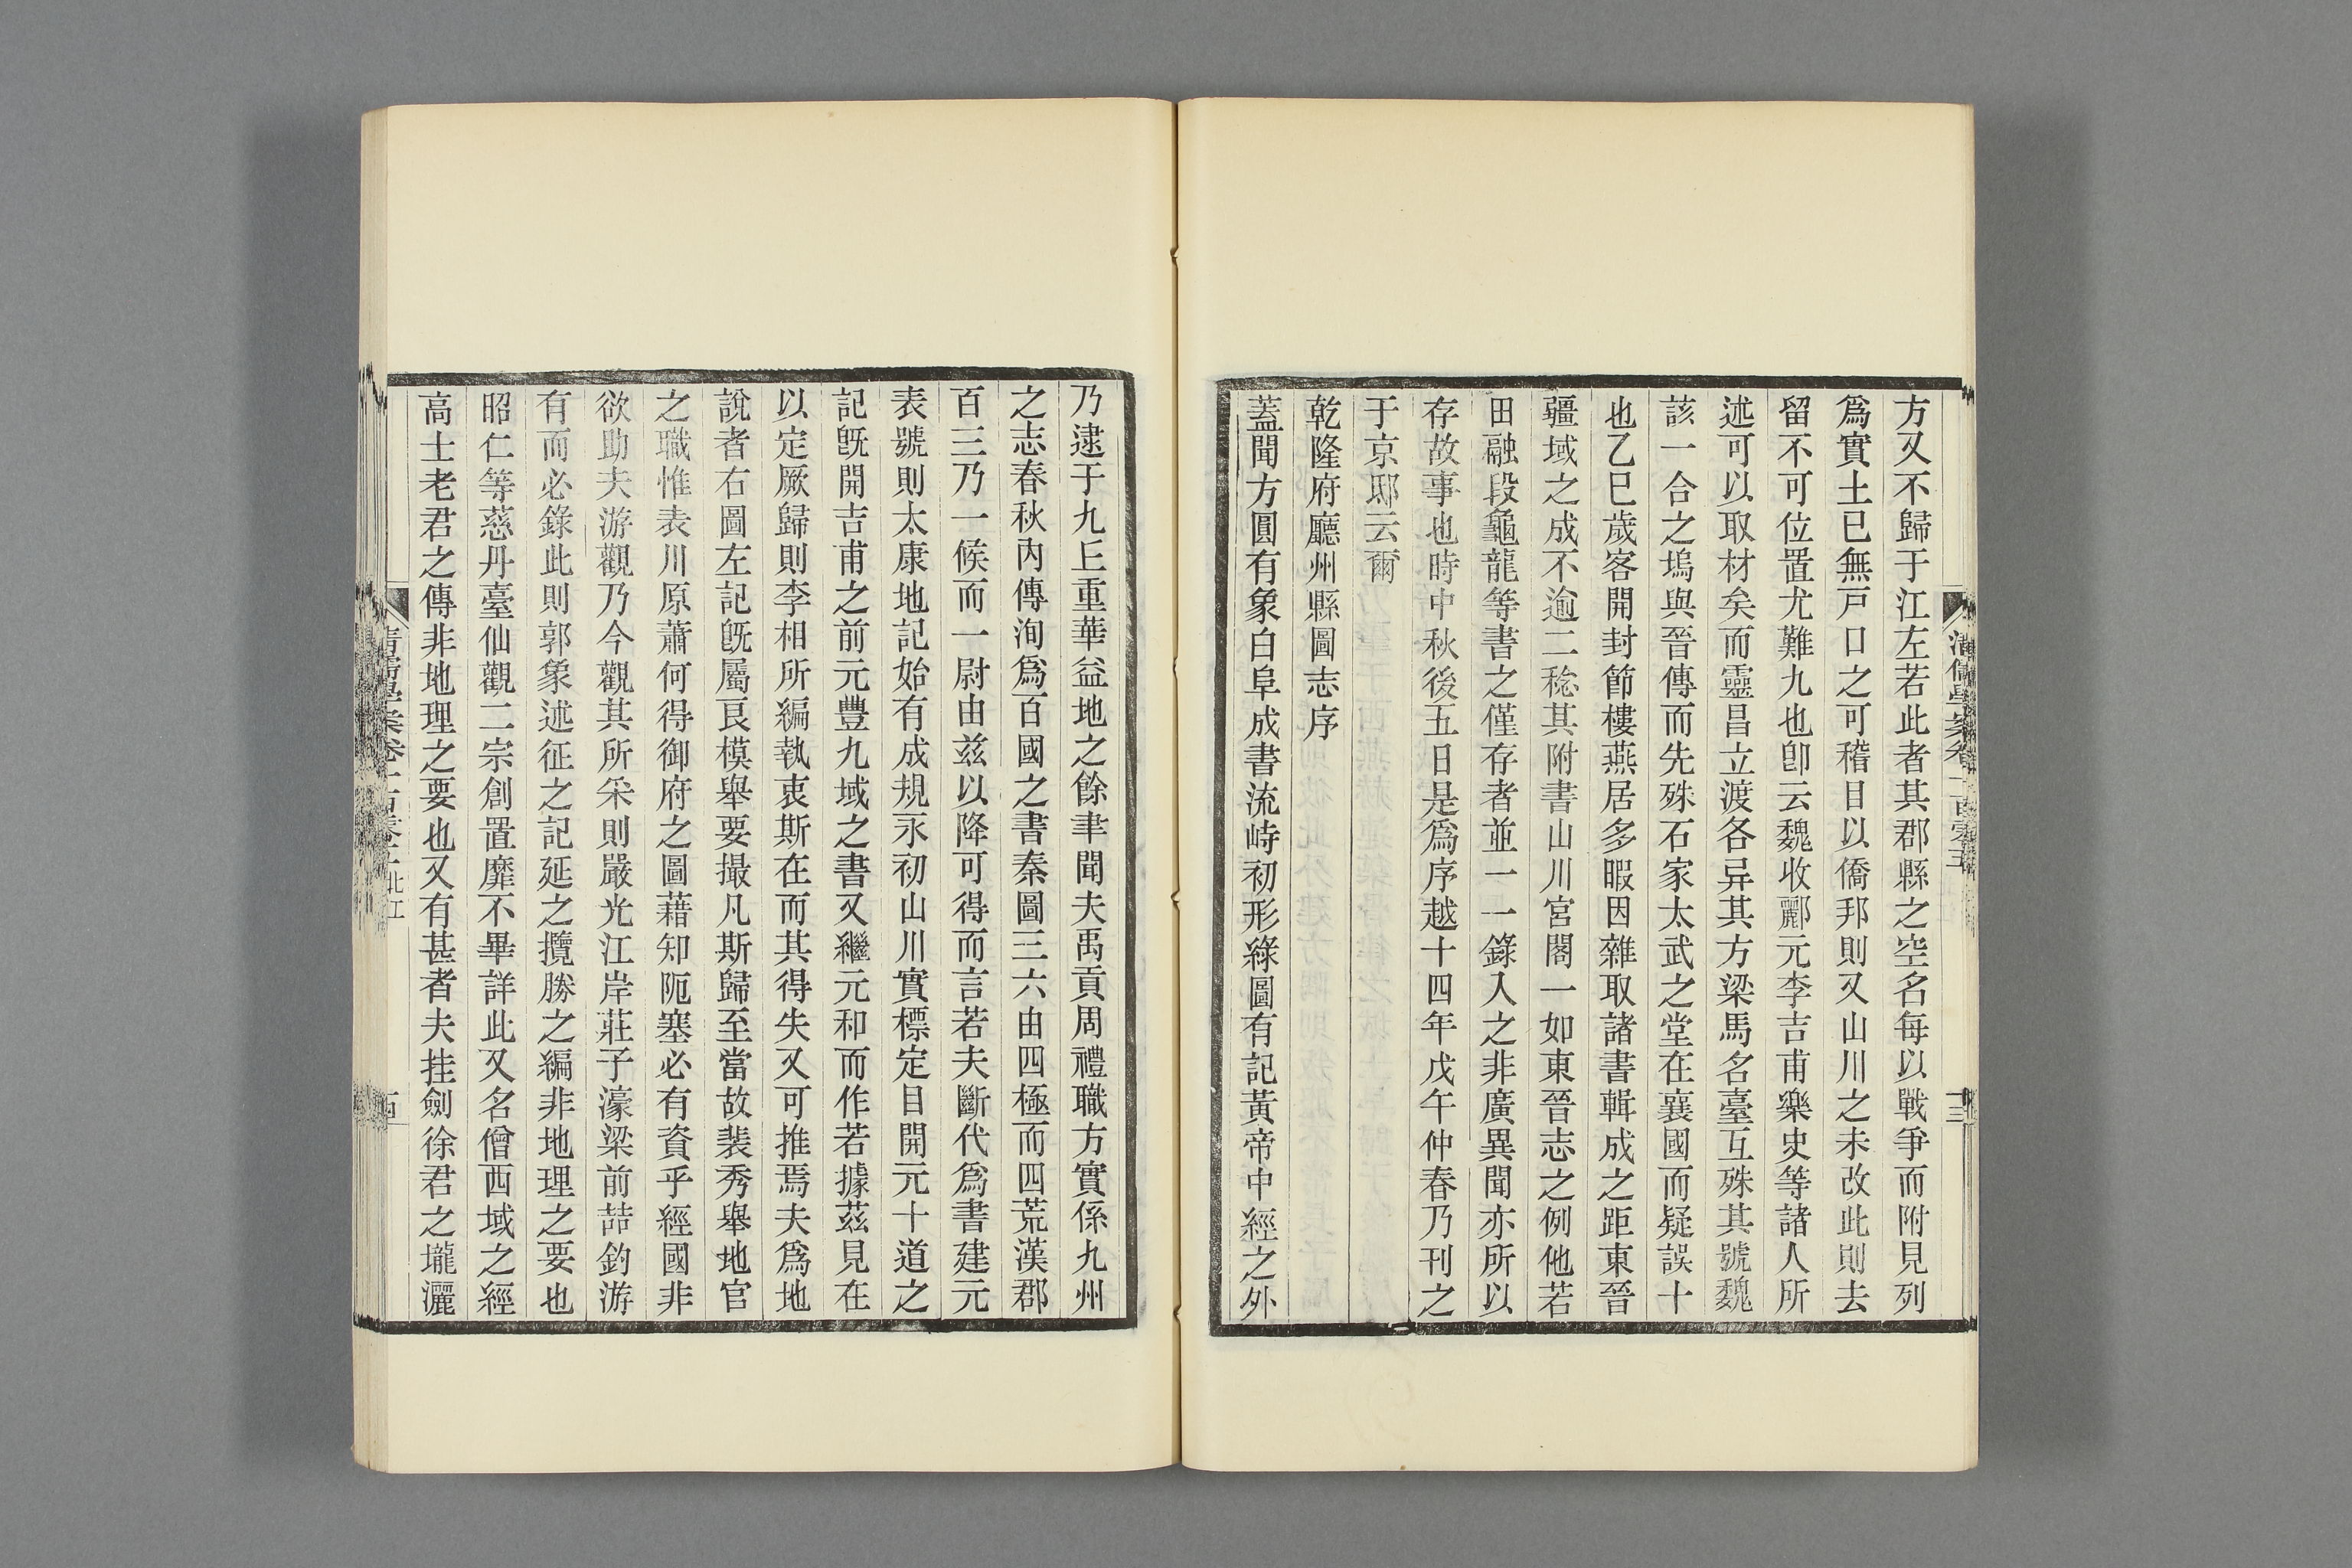 方又不歸于江左若此者其郡縣之空名每以戰爭而附見列
爲實土已無戸口之可稽目以僑邦則又山川之未改此則去
留不可位置尤難九也卽云魏收酈元李吉甫樂史等諸人所
述可以取材矣而靈昌立渡各异其方梁馬名臺互殊其號魏
該一合之塢與晉傳而先殊石家太武之堂在襄國而疑誤十
也乙巳歲客開封節樓燕居多暇因雜取諸書輯成之距東晉
疆域之成不逾二稔其附書山川宮閣一如東晉志之例他若
田融段龜龍等書之僅存者並一一錄入之非廣異聞亦所以
存故事也時中秋後五日是爲序越十四年戊午仲春乃刊之
于京邸云爾
乾隆府廳州縣圖志序
蓋聞方圓有象白阜成書流峙初形綠圖有記黃帝中經之外
清儒學案卷一百零五
十三
乃逮于九丘重華益地之餘聿聞夫禹貢周禮職方實係九州
之志春秋內傳洵爲百國之書秦圖三六由四極而四荒漢郡
百三乃一候而一尉由茲以降可得而言若夫斷代爲書建元
表號則太康地記始有成規永初山川實標定目開元十道之
記旣開吉甫之前元豐九域之書又繼元和而作若據茲見在
以定厥歸則李相所編執衷斯在而其得失又可推焉夫爲地
說者右圖左記旣屬良模舉要撮凡斯歸至當故裴秀舉地官
之職惟表川原蕭何得御府之圖藉知阨塞必有資乎經國非
欲助夫游觀乃今觀其所采則嚴光江岸莊子濠梁前喆釣游
有而必錄此則郭象述征之記延之攬勝之編非地理之要也
昭仁等慈丹臺仙觀二宗創置靡不畢詳此又名僧西域之經
高士老君之傳非地理之要也又有甚者夫挂劍徐君之壠灑
清儒學案卷一百零五 北江